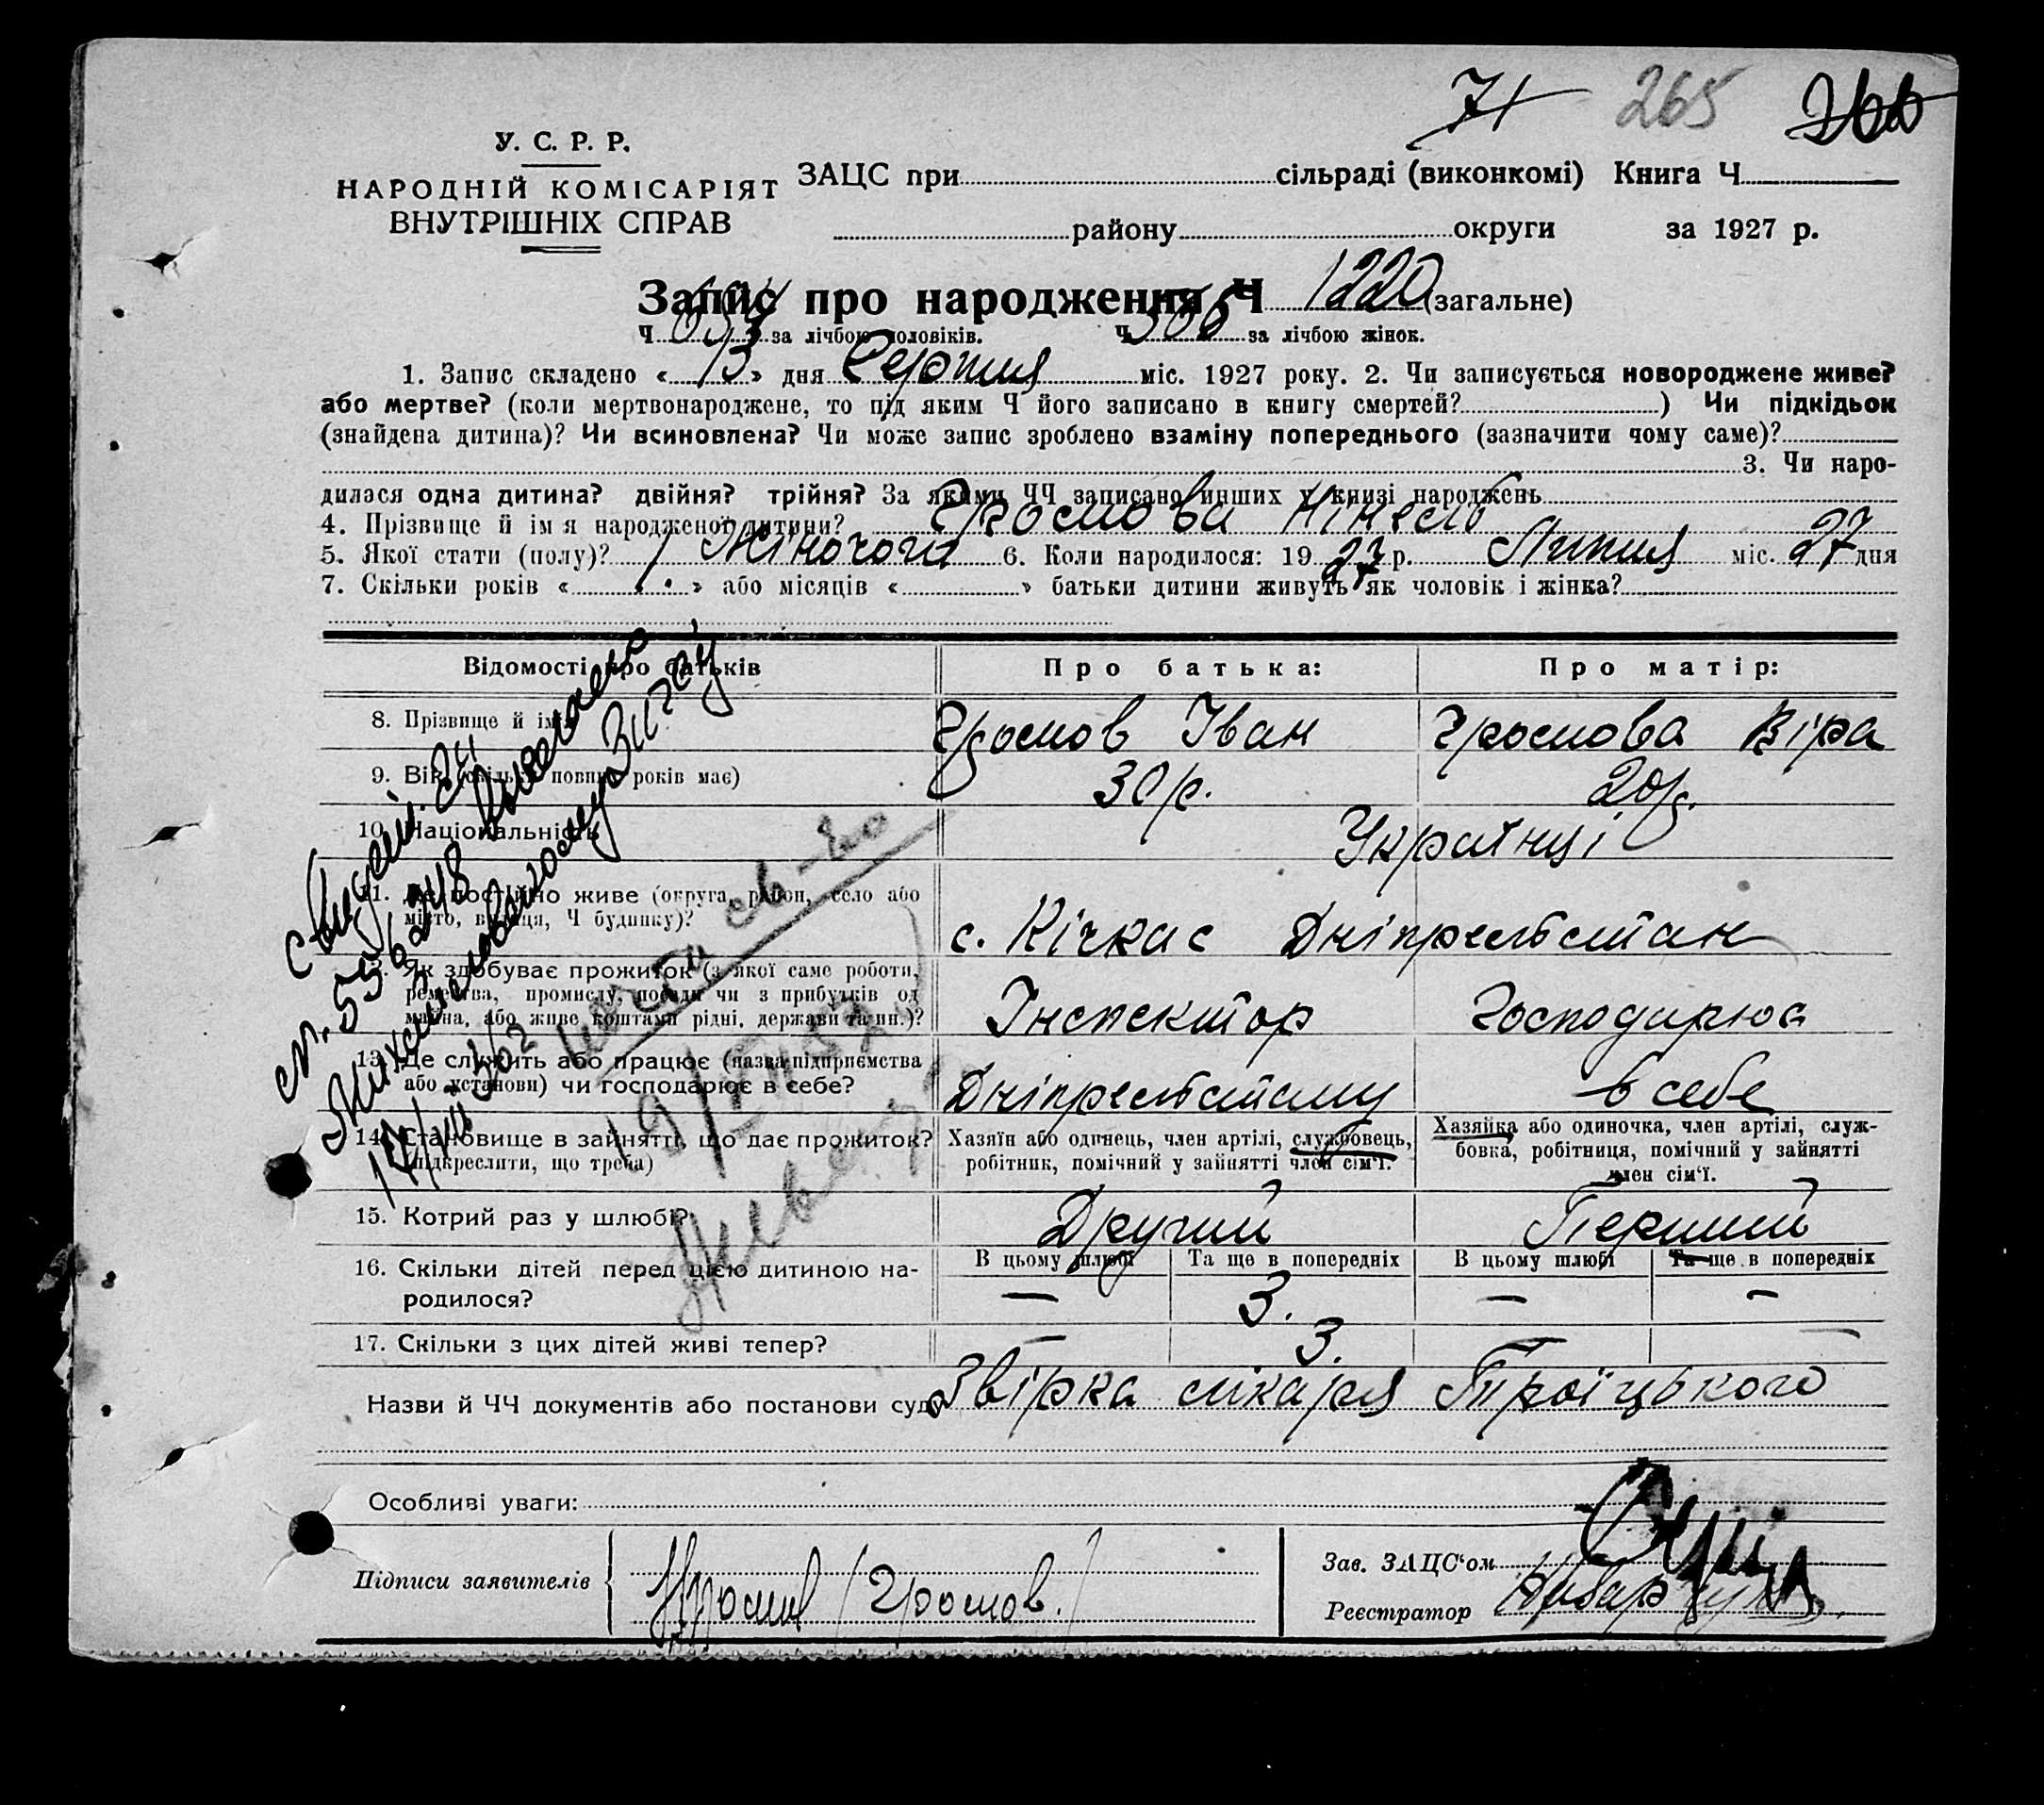 71 265 266
У. С. Р. Р.
НАРОДНІЙ КОМІСАРІЯТ
ВНУТРІШНІХ СПРАВ
ЗАЦС при сільраді (виконкомі) Книга Ч
району округи за 1927 р.
Запис про народження Ч 1220 (загальне)
Ч за лічбою чоловіків. Ч за лічбою жінок.
1. Запис складено « 13 » дня Серпня міс. 1927 року. 2. Чи записується новороджене живе?
або мертве? (коли мертвонароджене, то під яким Ч його записано в книгу смертей? ) Чи підкідьок
(знайдена дитина)? Чи всиновлена? Чи може запис зроблено взаміну попереднього (зазначити чому саме)?
3. Чи наро-
дилася одна дитина? двійня? трійня? За якими ЧЧ записано инших у книзі народжень
4. Прізвище й ім'я народженої дитини? Громова Нінель
5. Якої стати (полу)? Жіночого 6. Коли народилося: 19 27 р. Липня міс. 27 дня
7. Скільки років « » або місяців « » батьки дитини живуть як чоловік і жінка?
Відомості про батьків Про батька: Про матір:
8. Прізвище й ім'я Громов Іван Громова Віра
9. Вік (скільки повних років має) 30 р. 20 р.
10. Національність Українці
11. Де постійно живе (округа, район, село або
місто, вулиця, Ч будинку)? с. Кічкас Дніпрельстан
12. Як здобуває прожиток (з якої саме роботи,
ремества, промислу, посади чи з прибутків од
майна, або живе коштами рідні, держави та ин.)? Інспектор Господарює
13. Де служить або працює (назва підприємства
або установи) чи господарює в себе? Дніпрельстану в себе
14. Становище в занятті, що дає прожиток?
(підкреслити, що треба)
Хазяїн або одинець, член артілі, службовець,
робітник, помічний у зайнятті член сім'ї.
Хазяйка або одиночка, член артілі, служ-
бовка, робітниця, помічний у зайнятті
член сім'ї.
15. Котрий раз у шлюбі? Другий Перший
В цьому шлюбі Та ще в попередніх В цьому шлюбі Та ще в попередніх
16. Скільки дітей перед цією дитиною на-
родилося? — 3. — —
17. Скільки з цих дітей живі тепер? — 3. — —
Назви й ЧЧ документів або постанови суду Звірка лікаря Троїцького
Особливі уваги:
Підписи заявителів /Громов./
Зав. ЗАЦС'ом
Реєстратор